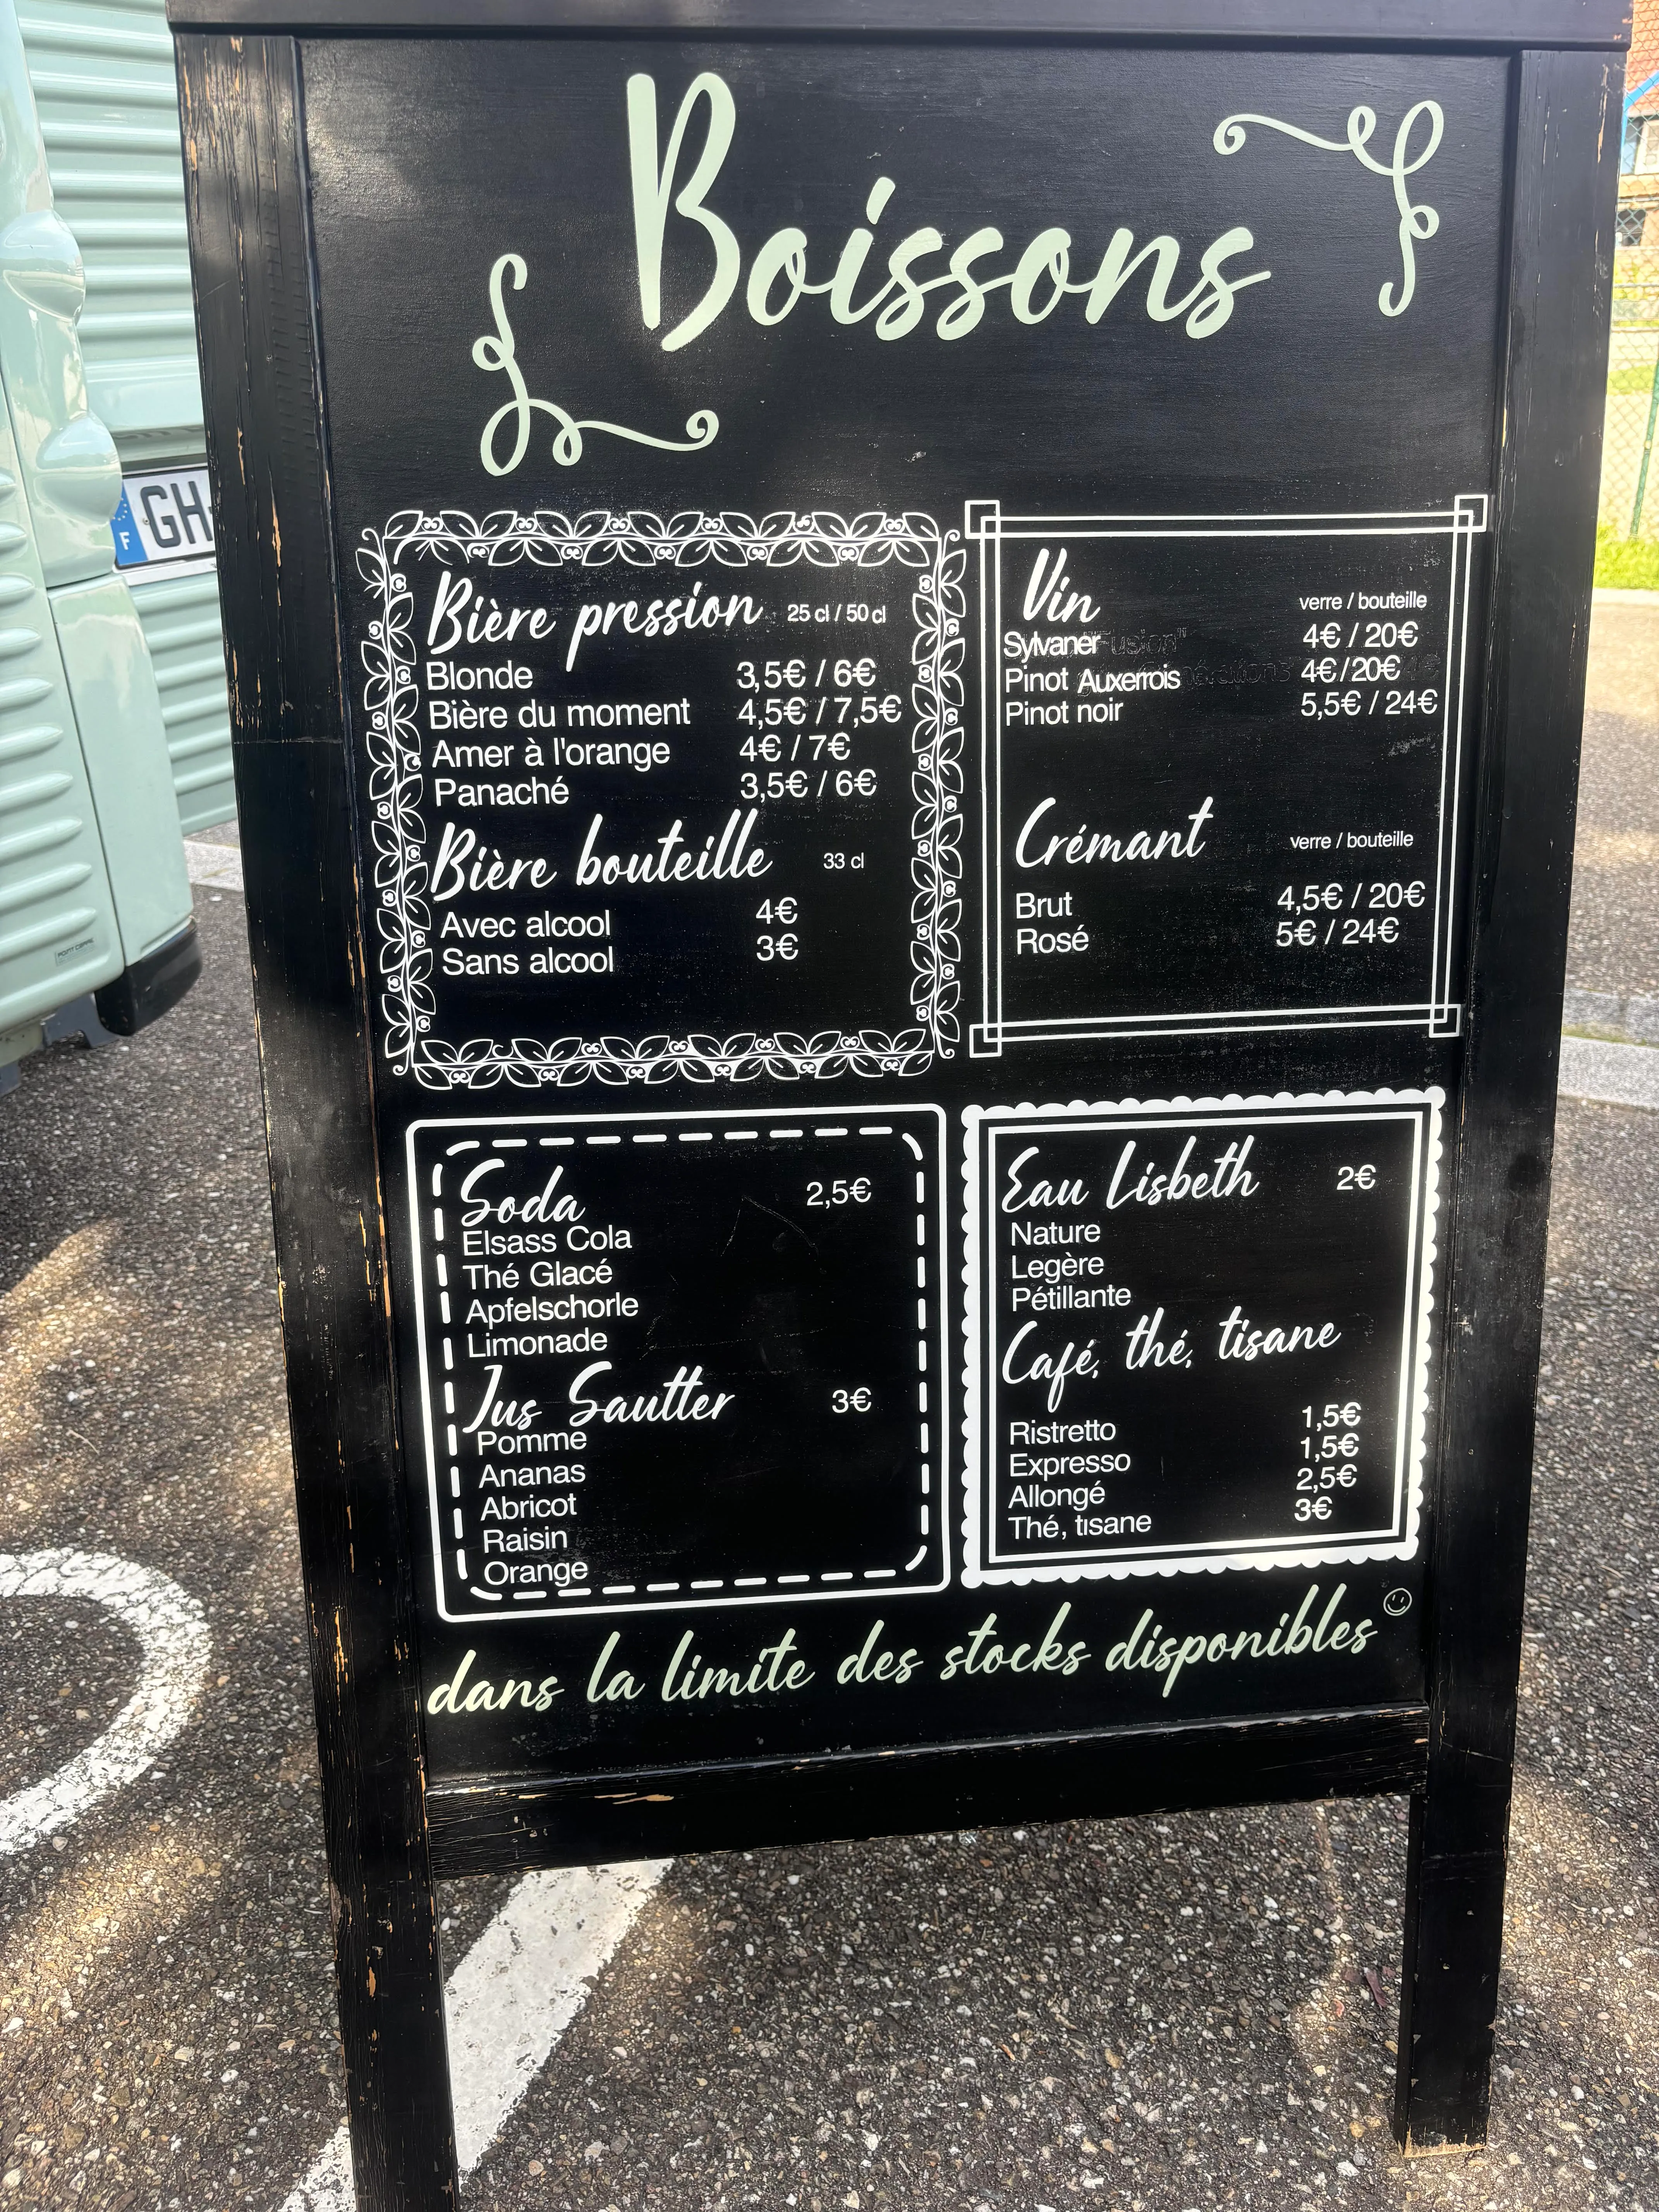 Boissons
GH
F
Bière pression 25 cl / 50 cl
Blonde 3,5€ / 6€
Bière du moment 4,5€ / 7,5€
Amer à l'orange 4€ / 7€
Panaché 3,5€ / 6€
Bière bouteille 33 cl
Avec alcool 4€
Sans alcool 3€
Vin verre / bouteille
Sylvaner 4€ / 20€
Pinot Auxerrois 4€ / 20€
Pinot noir 5,5€ / 24€
Crémant verre / bouteille
Brut 4,5€ / 20€
Rosé 5€ / 24€
Soda 2,5€
Elsass Cola
Thé Glacé
Apfelschorle
Limonade
Jus Sautter 3€
Pomme
Ananas
Abricot
Raisin
Orange
Eau Lisbeth 2€
Nature
Legère
Pétillante
Café, thé, tisane
Ristretto 1,5€
Expresso 1,5€
Allongé 2,5€
Thé, tisane 3€
dans la limite des stocks disponibles